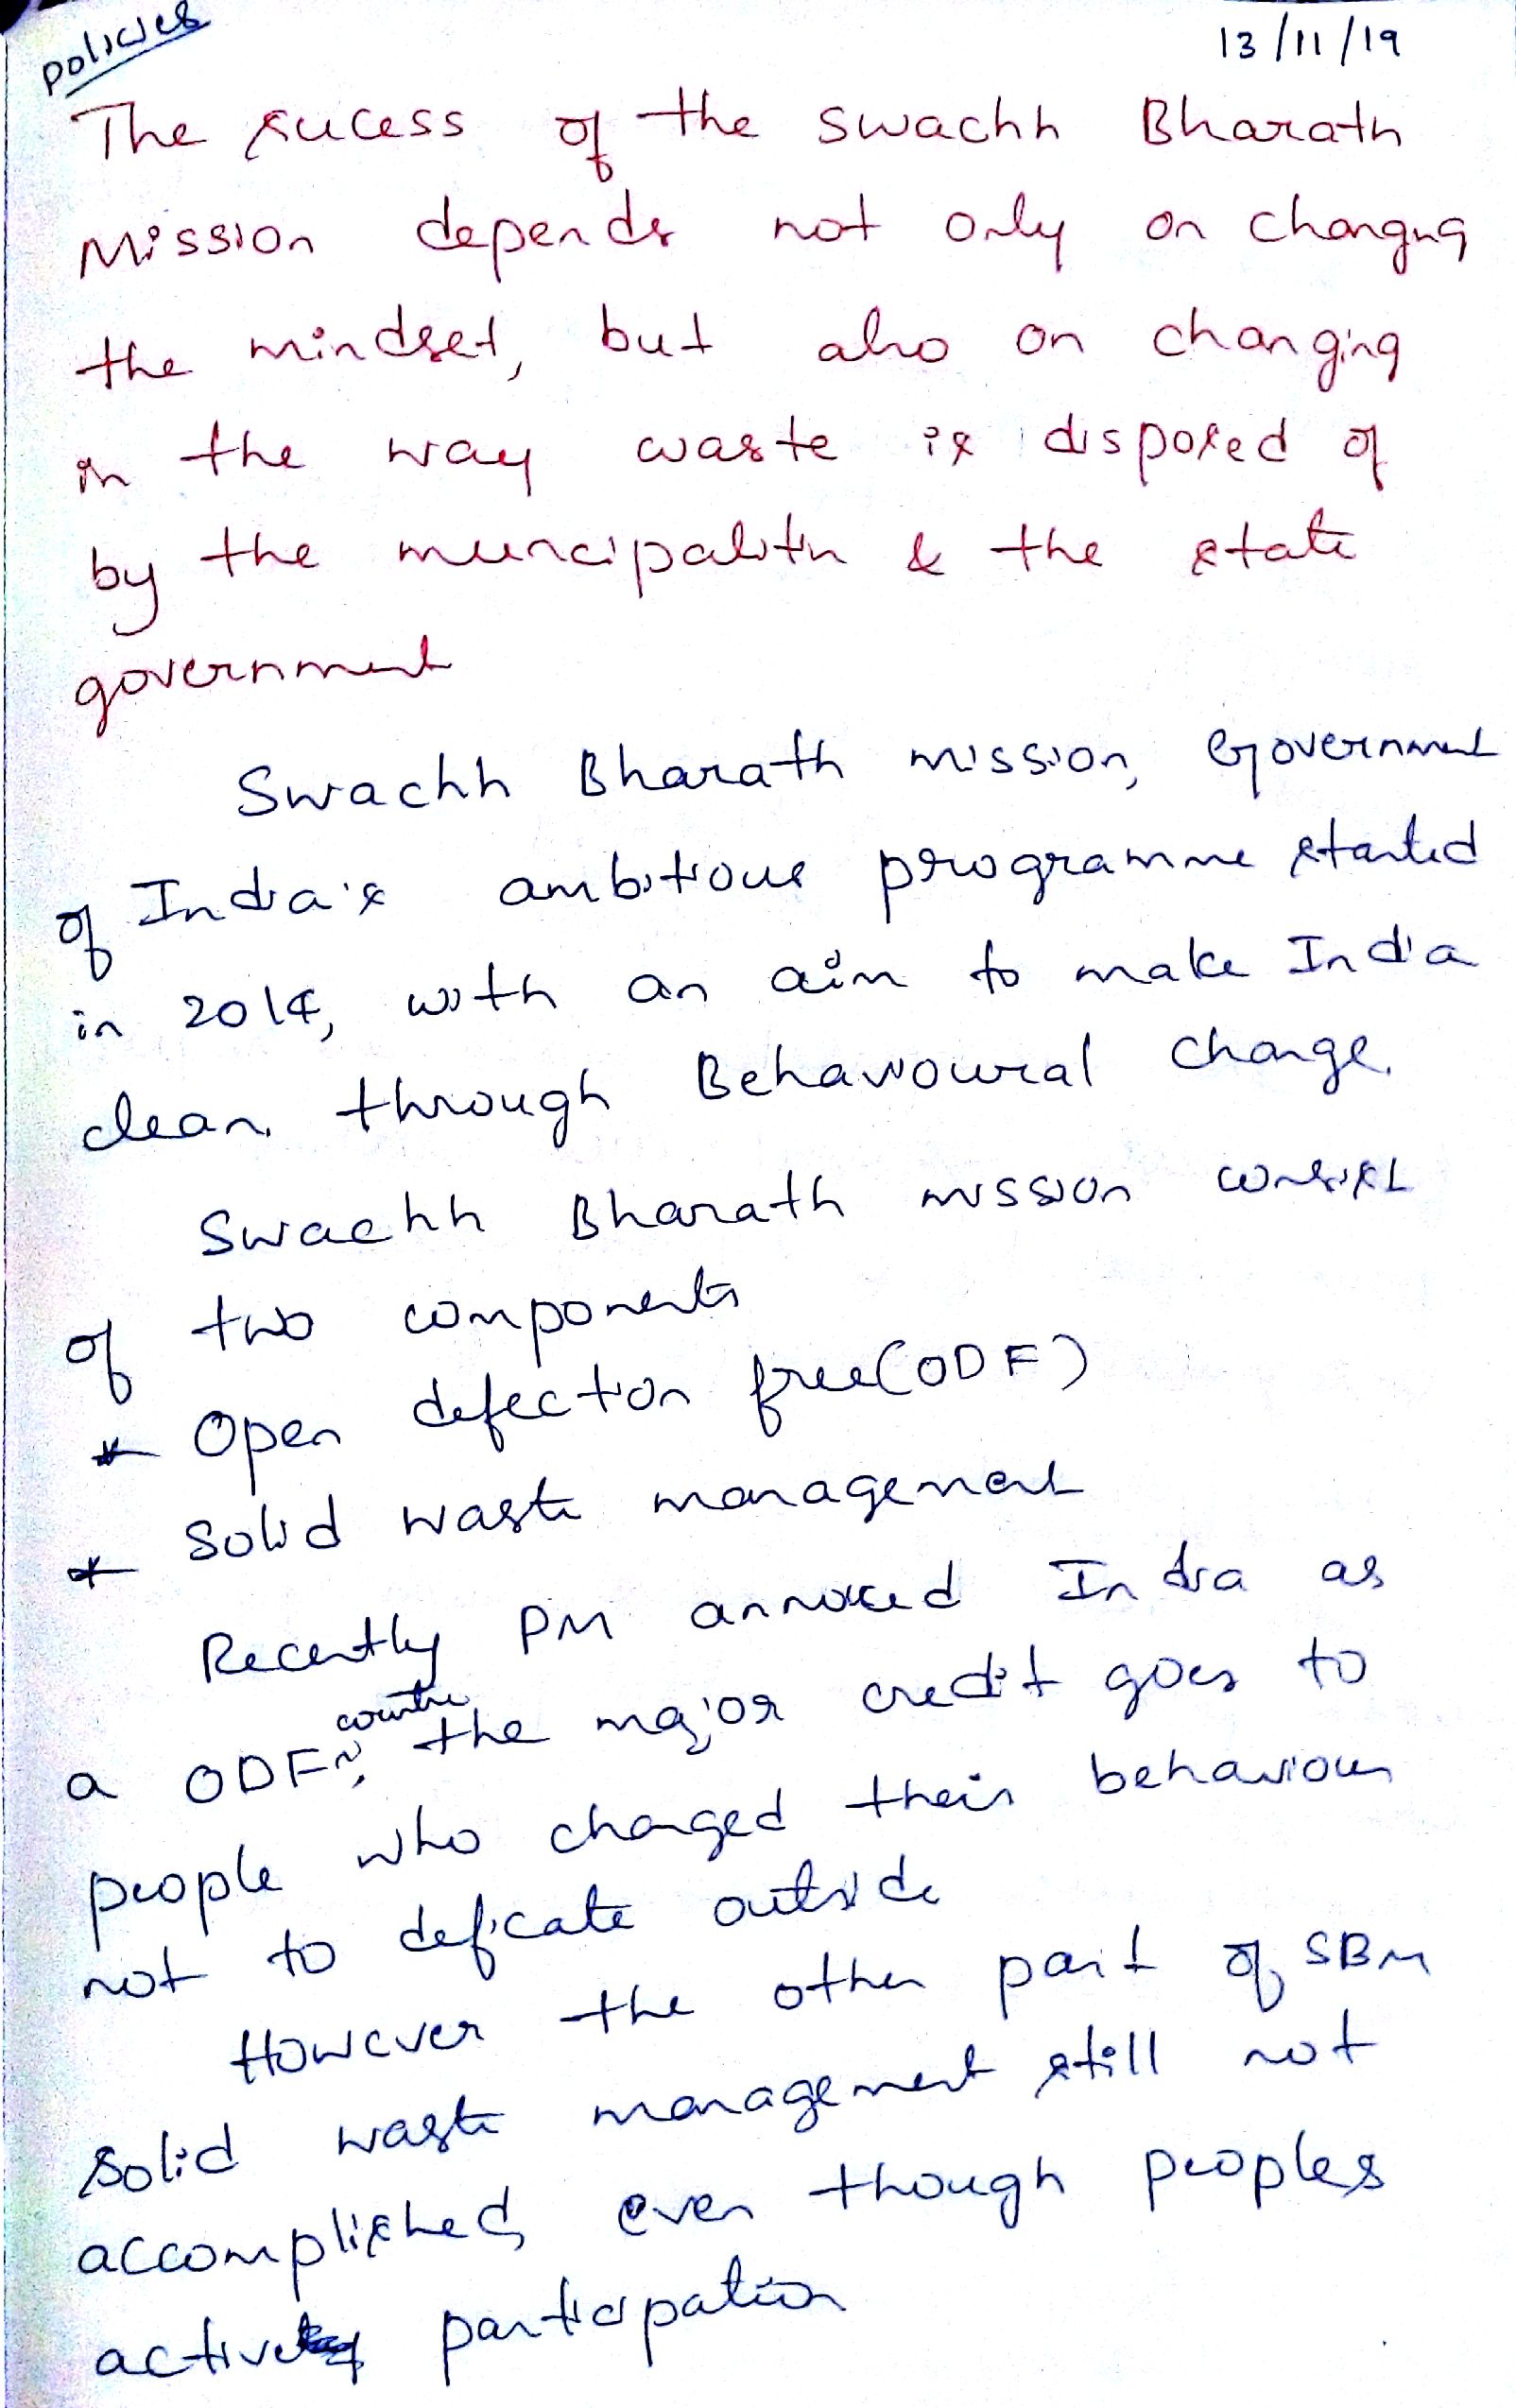 policies
13/11/19
The sucess of the swachh Bharath
Mission depends not only on changng
the mindset, but also on changing
in the way waste is disposed of
by the muncipalitn & the state
government
Swachh Bharath mission, Government
of India's ambitious programme started
in 2014, with an aim to make India
clean through Behavioural change.
Swachh Bharath mission consist
of two components
* Open defection free (ODF)
* Solid waste management
Recently PM annouced India as
a ODF countre, the major credit goes to
people who changed their behaviour
not to deficate outside
However the other part of SBM
solid waste management still not
accomplished even though peoples
active participation